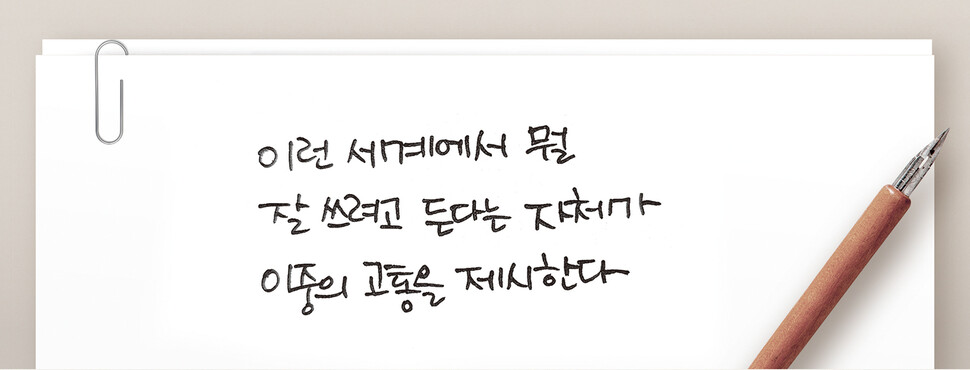 이런 세계에서 뭘
잘 쓰려고 든다는 자체가
이중의 고통을 제시한다